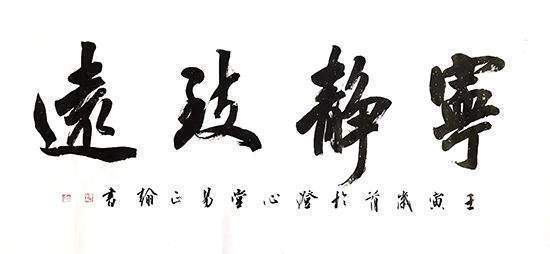 寧静致遠
壬寅歲首於澄心堂易正翰書